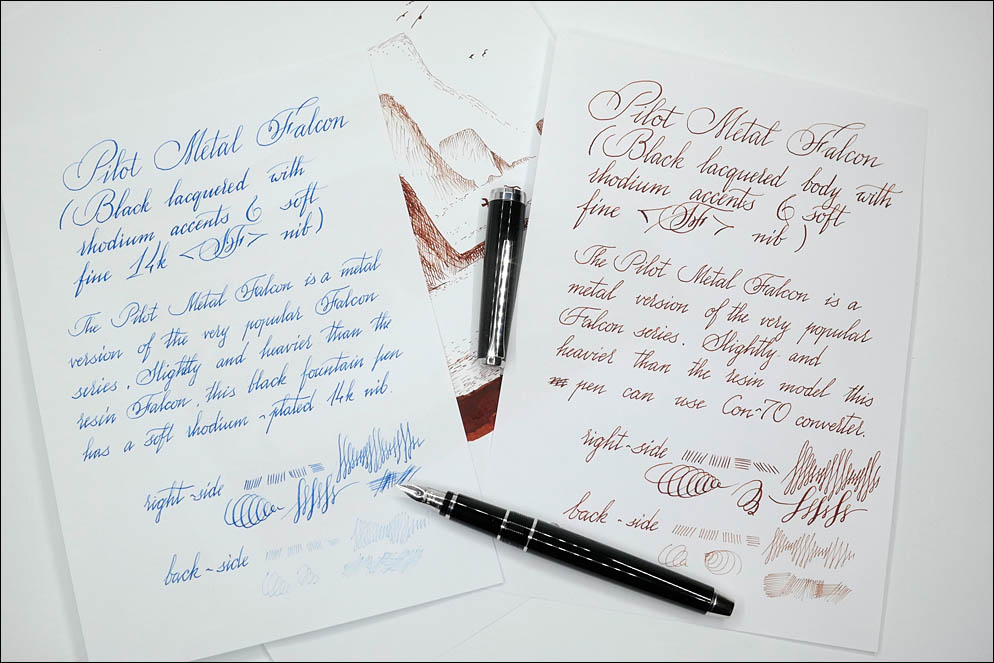 Pilot Metal Falcon
(Black lacquered with
rhodium accents & soft
fine 14k <SF> nib)
The Pilot Metal Falcon is a metal
version of the very popular Falcon
series. Slightly and heavier than the
resin Falcon, this black fountain pen
has a soft rhodium-plated 14k nib.
right-side
back-side
Pilot Metal Falcon
(Black lacquered body with
rhodium accents & soft
fine <SF> nib)
The Pilot Metal Falcon is a
metal version of the very popular
Falcon series. Slightly and
heavier than the resin model this
pen can use Con-70 converter.
right-side
back-side